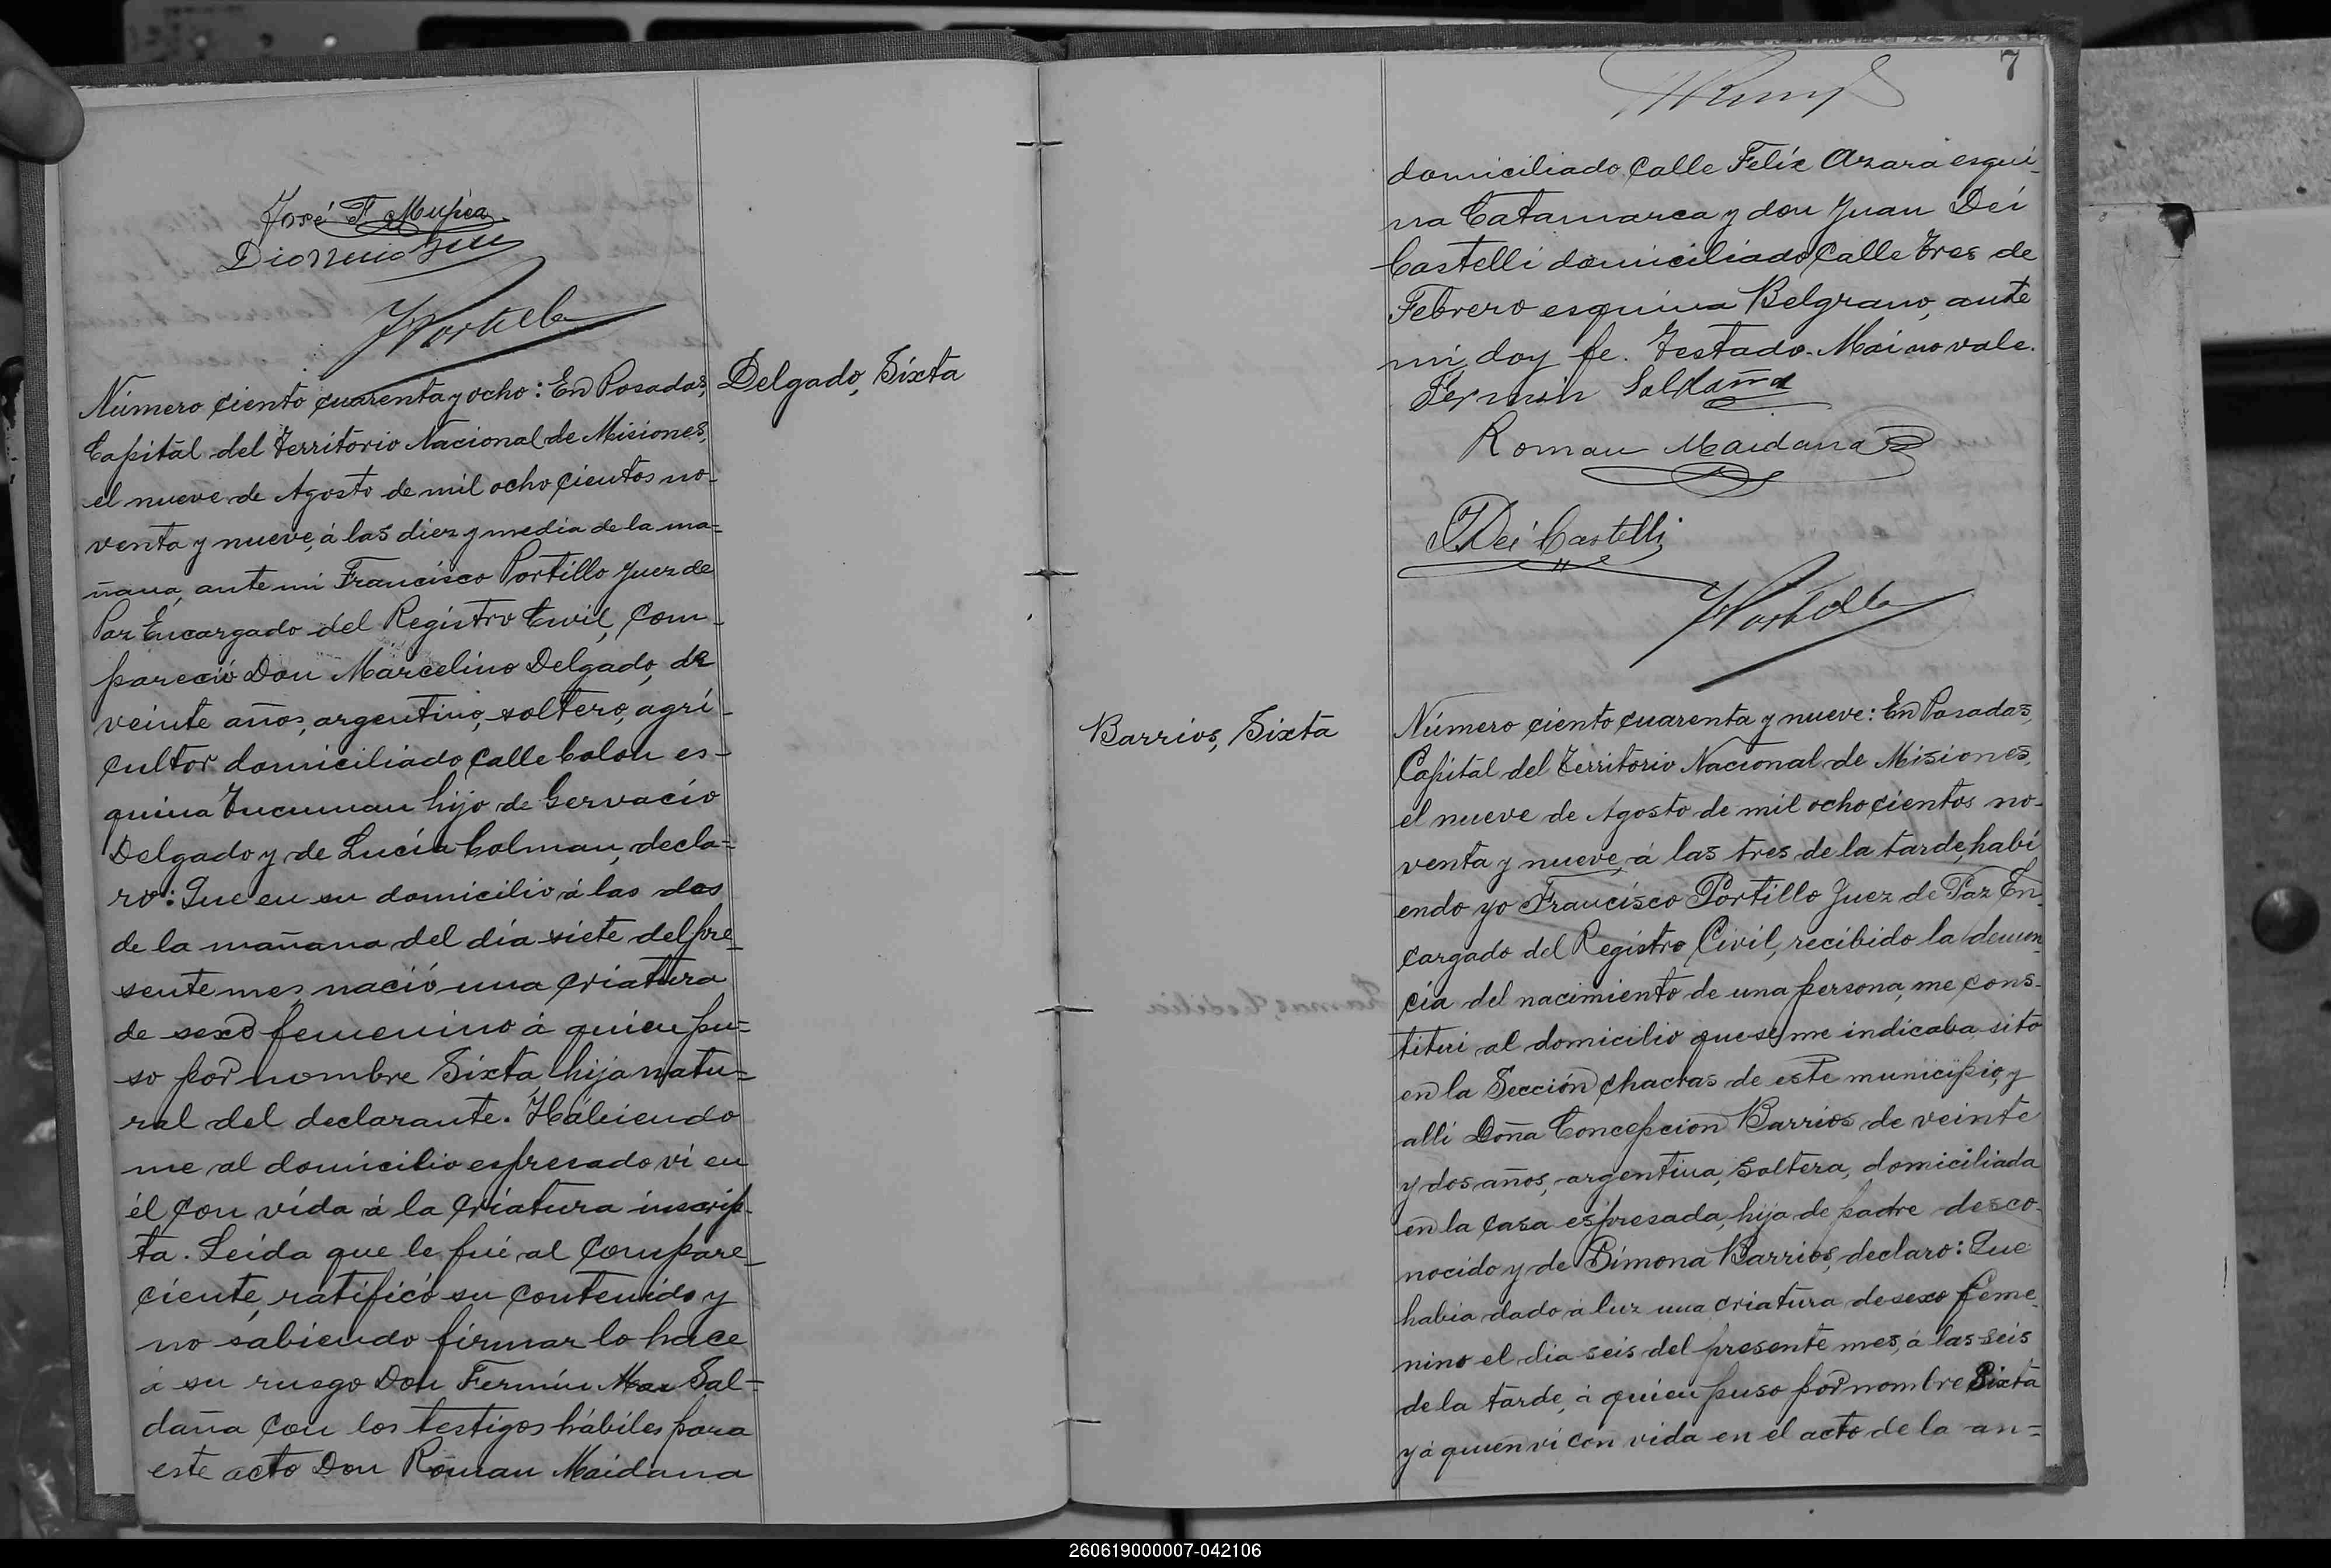 José F. Mujica
Dionicio
FPortillo
Delgado, Sixta
Número ciento cuarenta y ocho: En Posadas,
Capital del Territorio Nacional de Misiones,
el nueve de Agosto de mil ochocientos no-
venta y nueve, á las diez y media de la ma=
ñana, ante mi Francisco Portillo Juez de
Paz Encargado del Registro Civil, com-
pareció Don Marcelino Delgado, de
veinte años, argentino, soltero, agri-
cultor domiciliado calle Colon es-
quina Tucuman hijo de Gervacio
Delgado y de Lucía Colman, decla=
ro: Que en su domicilio á las dos
de la mañana del día siete del pre-
sente mes nació una criatura
de sexo femenino á quien pu=
so por nombre Sixta, hija natu=
ral del declarante. Habiendo
me al domicilio espresado vi en
él con vida á la criatura inscrip-
ta. Leida que le fué al compare-
ciente, ratificó su contenido y
no sabiendo firmar lo hace
á su ruego Don Fermín Mai Sal=
daña con los testigos hábiles para
este acto Don Roman Maidana
7
domiciliado calle Felix Azara esqui-
na Catamarca y don Juan Dei
Castelli domiciliado calle Tres de
Febrero esquina Belgrano, ante
mi, doy fe. Testado. Mai no vale.
Fermin Saldaña
Roman Maidana
JDei Castelli
FPortillo
Barrios, Sixta
Número ciento cuarenta y nueve: En Posadas,
Capital del Territorio Nacional de Misiones,
el nueve de Agosto de mil ochocientos no-
venta y nueve, á las tres de la tarde, habi
endo yo Francisco Portillo Juez de Paz En-
cargado del Registro Civil, recibido la denun-
cia del nacimiento de una persona, me cons-
titui al domicilio que se me indicaba sito
en la Sección chacras de este municipio, y
alli Doña Concepcion Barrios de veinte
y dos años, argentina, soltera, domiciliada
en la casa espresada, hija de padre desco-
nocido y de Simona Barrios, declaro: Que
habia dado á luz una criatura de sexo feme-
nino el dia seis del presente mes, á las seis
de la tarde, á quien puso por nombre Sixta
y á quien vi con vida en el acto de la an=
260619000007-042106